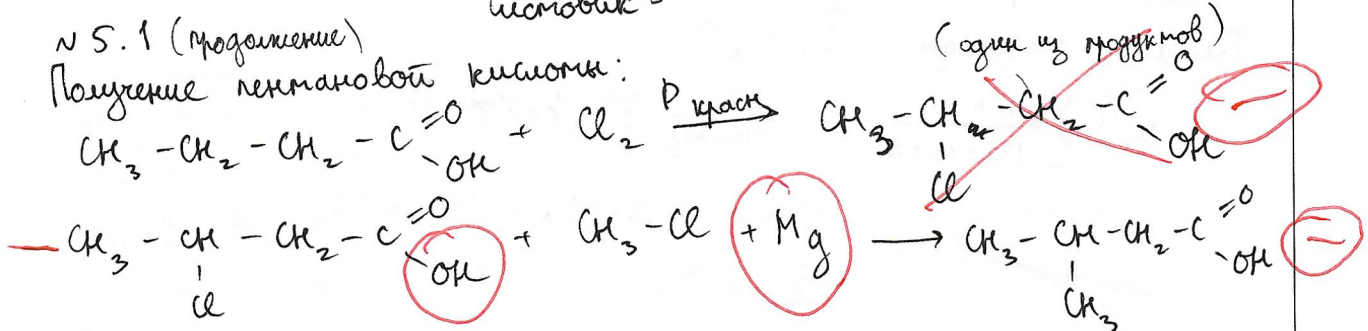 чистовик -
№ 5.1 (продолжение)
(один из продуктов)
Получение пентановой кислоты:
CH3 - CH2 - CH2 - C =O - OH + Cl2 P красн → CH3 - CH - CH2 - C =O - OH Cl
CH3 - CH - CH2 - C =O - OH Cl + CH3 - Cl + Mg → CH3 - CH - CH2 - C =O - OH CH3